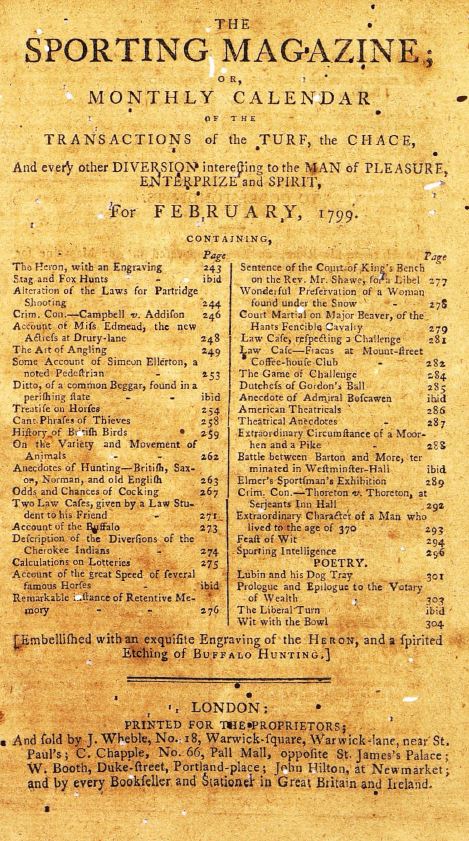 THE
SPORTING MAGAZINE;
OR,
MONTHLY CALENDAR
OF THE
TRANSACTIONS of the TURF, the CHACE,
And every other DIVERSION intereſting to the MAN of PLEASURE,
ENTERPRIZE and SPIRIT,
For FEBRUARY, 1799.
CONTAINING,
Page
The Heron, with an Engraving 243
Stag and Fox Hunts - ibid
Alteration of the Laws for Partridge
Shooting 244
Crim. Con.—Campbell v. Addiſon 246
Account of Miſs Edmead, the new
Actreſs at Drury-lane 248
The Art of Angling 249
Some Account of Simeon Ellerton, a
noted Pedeſtrian - 253
Ditto, of a common Beggar, found in a
periſhing ſtate - - ibid
Treatiſe on Horſes - 254
Cant Phraſes of Thieves - 258
Hiſtory of Britiſh Birds - 259
On the Variety and Movement of
Animals - - 262
Anecdotes of Hunting—Britiſh, Sax-
on, Norman, and old Engliſh 263
Odds and Chances of Cocking 267
Two Law Caſes, given by a Law Stu-
dent to his Friend - 271
Account of the Buffalo 273
Deſcription of the Diverſions of the
Cherokee Indians - 274
Calculations on Lotteries 275
Account of the great Speed of ſeveral
famous Horſes - ibid
Remarkable Inſtance of Retentive Me-
mory - - 276
Page
Sentence of the Court of King's Bench
on the Rev. Mr. Shawe, for a Libel 277
Wonderful Preſervation of a Woman
found under the Snow - 278
Court Martial on Major Beaver, of the
Hants Fencible Cavalry 279
Law Caſe, reſpecting a Challenge 281
Law Caſe—Fracas at Mount-ſtreet
Coffee-houſe Club - 282
The Game of Challenge 284
Dutcheſs of Gordon's Ball 285
Anecdote of Admiral Boſcawen ibid
American Theatricals - 286
Theatrical Anecdotes - 287
Extraordinary Circumſtance of a Moor-
hen and a Pike - - 288
Battle between Barton and More, ter
minated in Weſtminſter-Hall ibid
Elmer's Sportſman's Exhibition 289
Crim. Con.—Thoreton v. Thoreton, at
Serjeants Inn Hall 292
Extraordinary Character of a Man who
lived to the age of 370 293
Feaſt of Wit - 294
Sporting Intelligence - 296
POETRY.
Lubin and his Dog Tray 301
Prologue and Epilogue to the Votary
of Wealth 303
The Liberal Turn ibid
Wit with the Bowl 304
[Embelliſhed with an exquiſite Engraving of the HERON, and a ſpirited
Etching of BUFFALO HUNTING.]
LONDON:
PRINTED FOR THE PROPRIETORS;
And ſold by J. Wheble, No. 18, Warwick-ſquare, Warwick-lane, near St.
Paul's; C. Chapple, No. 66, Pall Mall, oppoſite St. James's Palace;
W. Booth, Duke-ſtreet, Portland-place; John Hilton, at Newmarket;
and by every Bookſeller and Stationer in Great Britain and Ireland.